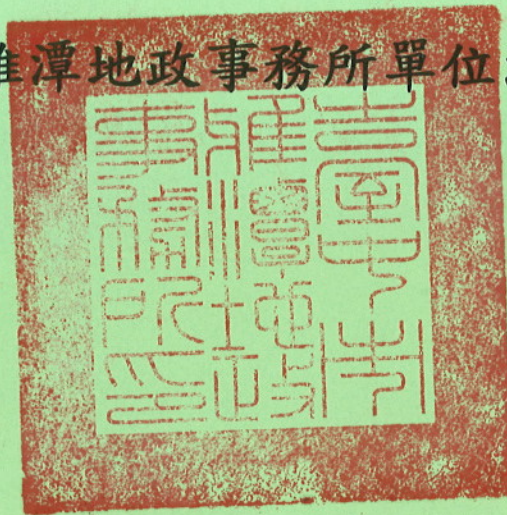 雅潭地政事務所單位
臺中市
雅潭地政
事務所印